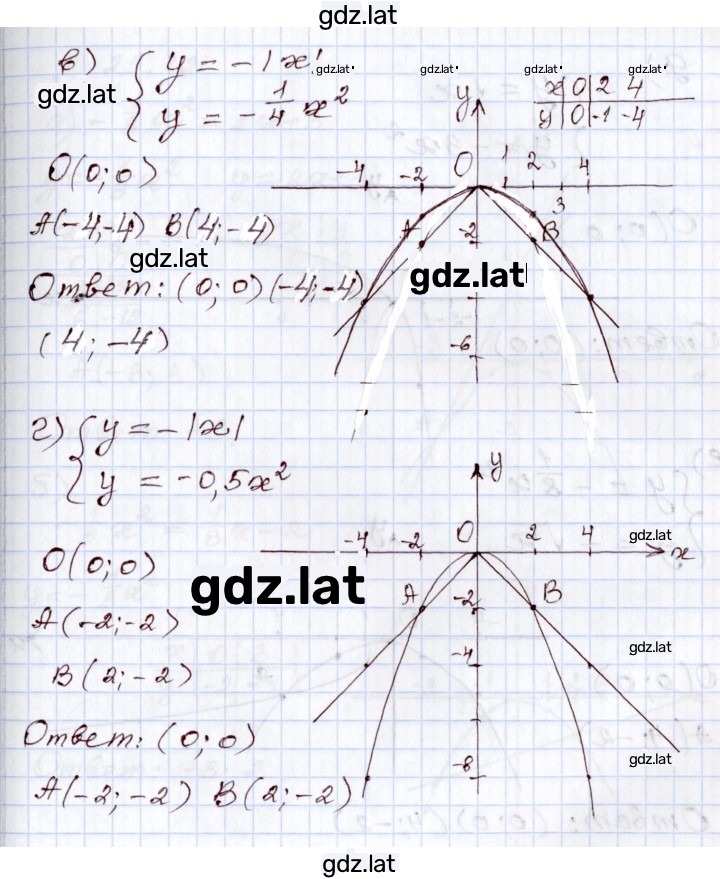 gdz.lat
в) { y = -|x|
y = -1/4 x²
gdz.lat
gdz.lat gdz.lat gdz.lat
x 0 2 4
y 0 -1 -4
y
O(0;0)
-4 -2 O 1 2 4
3
A(-4;-4) B(4;-4)
A -2 B
gdz.lat
gdz.lat
Ответ: (0;0) (-4;-4)
(4;-4)
-6
г) { y = -|x|
y = -0,5x²
y
-4 -2 O 2 4 x
gdz.lat
O(0;0)
gdz.lat
A -2 B
A(-2;-2)
-4
gdz.lat
B(2;-2)
Ответ: (0;0)
-8
gdz.lat
A(-2;-2) B(2;-2)
gdz.lat